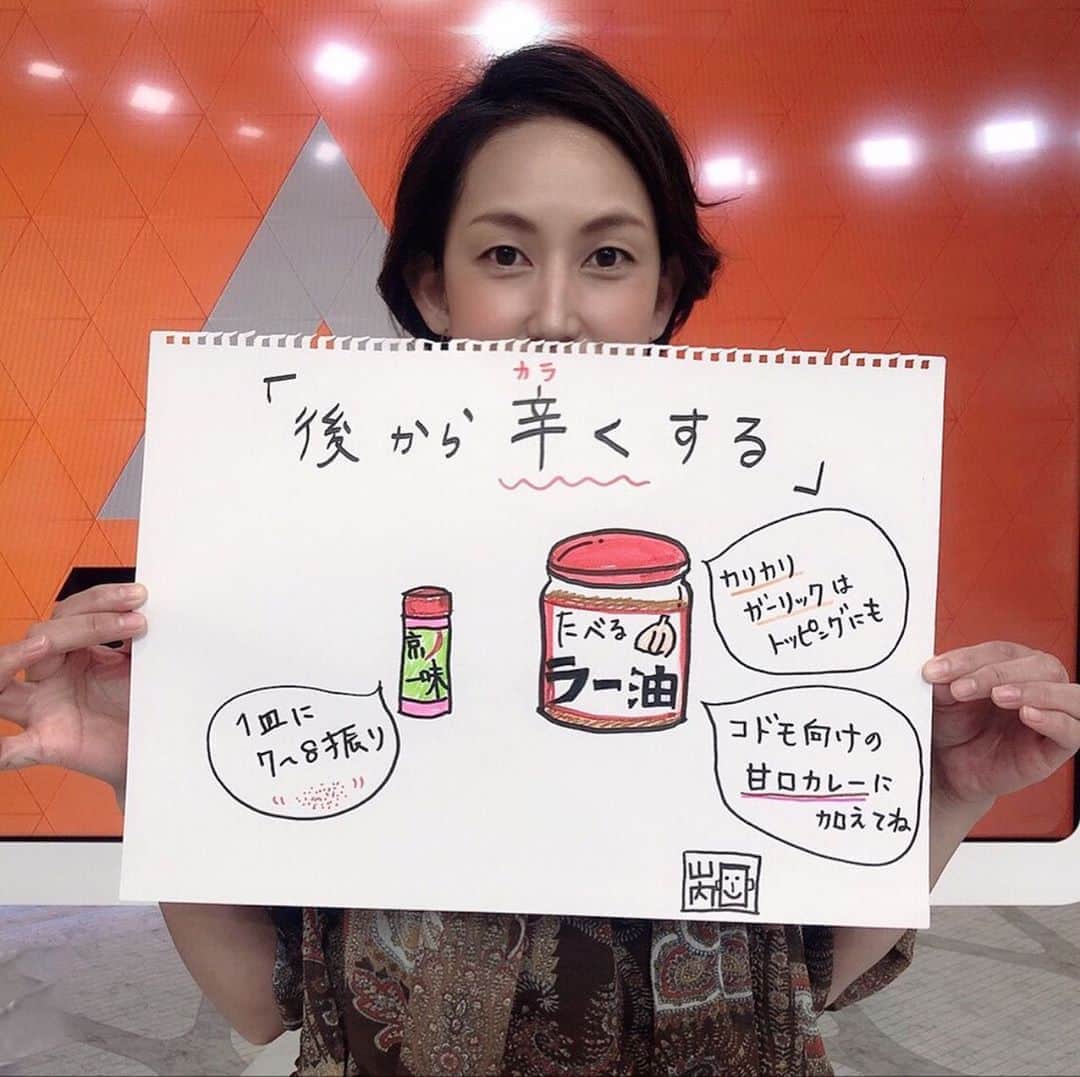 カラ
「後から辛くする」
カリカリ
ガーリックは
トッピングにも
たべる
ラー油
京ノ
一味
1皿に
7〜8振り
コドモ向けの
甘口カレーに
加えてね